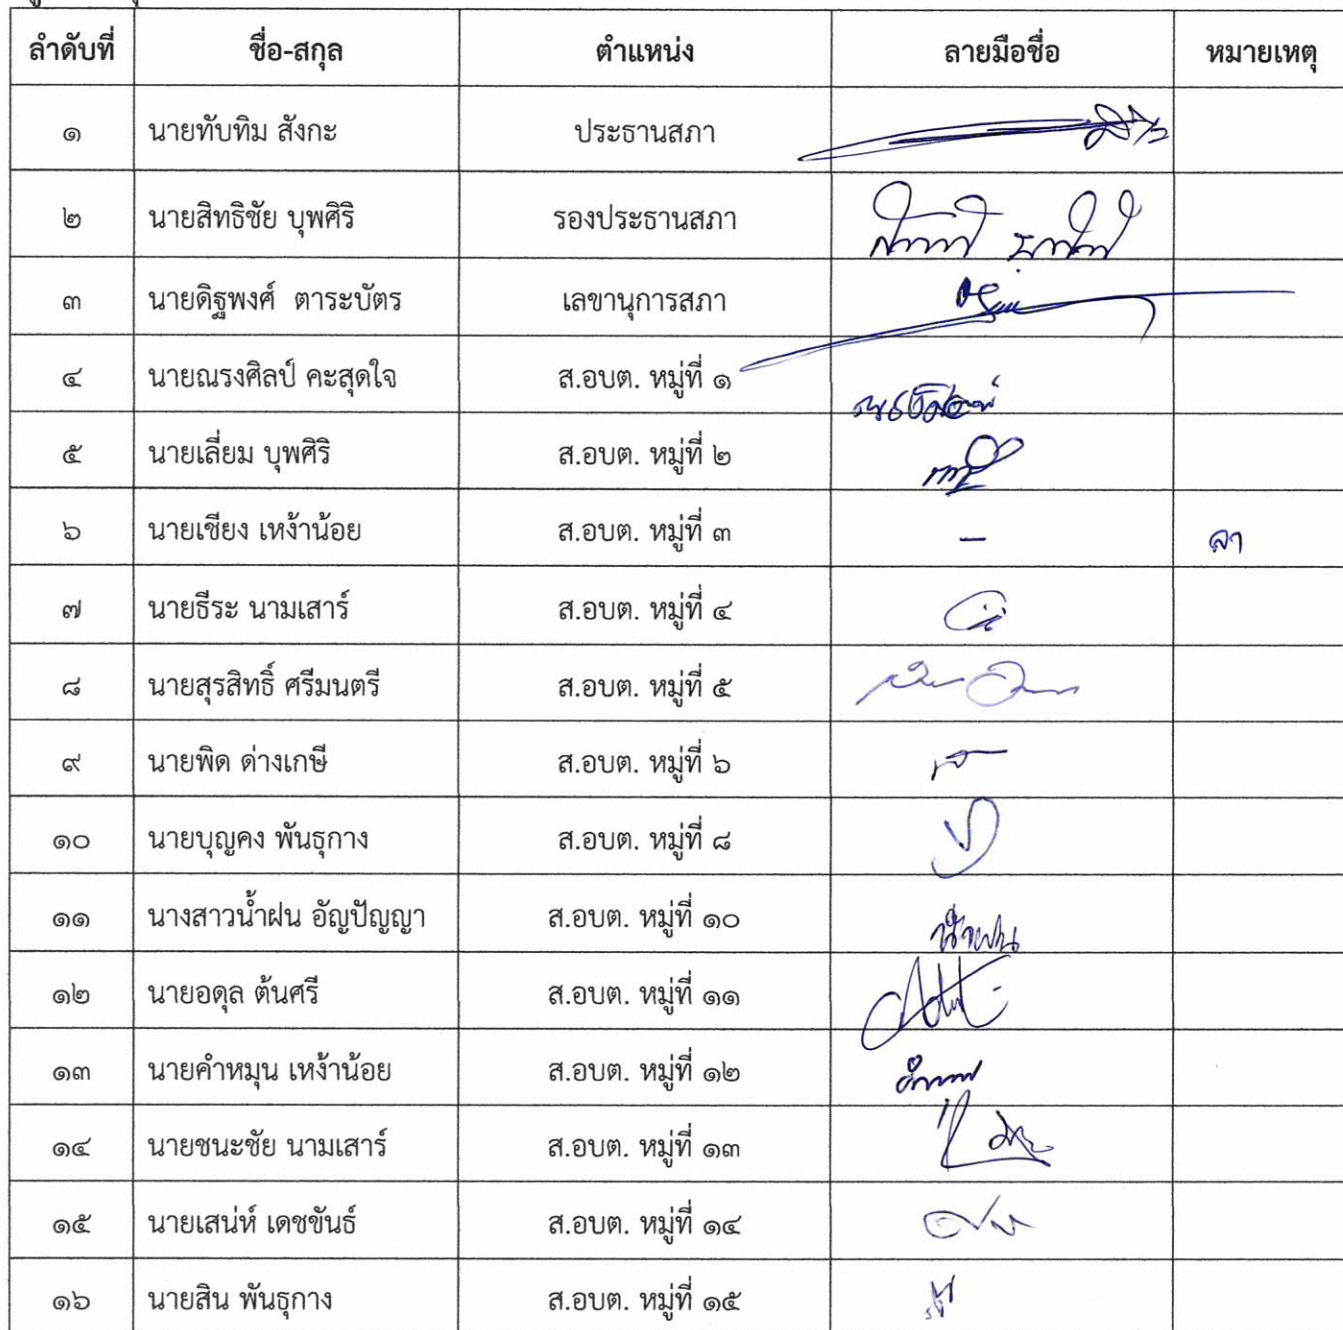 ลำดับที่ ชื่อ-สกุล ตำแหน่ง ลายมือชื่อ หมายเหตุ
๑ นายทับทิม สังกะ ประธานสภา
๒ นายสิทธิชัย บุพศิริ รองประธานสภา
๓ นายดิฐพงศ์ ตาระบัตร เลขานุการสภา
๔ นายณรงศิลป์ คะสุดใจ ส.อบต. หมู่ที่ ๑
๕ นายเลี่ยม บุพศิริ ส.อบต. หมู่ที่ ๒
๖ นายเชียง เหง้าน้อย ส.อบต. หมู่ที่ ๓ - ลา
๗ นายธีระ นามเสาร์ ส.อบต. หมู่ที่ ๔
๘ นายสุรสิทธิ์ ศรีมนตรี ส.อบต. หมู่ที่ ๕
๙ นายพิด ด่างเกษี ส.อบต. หมู่ที่ ๖
๑๐ นายบุญคง พันธุกาง ส.อบต. หมู่ที่ ๘
๑๑ นางสาวน้ำฝน อัญปัญญา ส.อบต. หมู่ที่ ๑๐ น้ำฝน
๑๒ นายอดุล ต้นศรี ส.อบต. หมู่ที่ ๑๑
๑๓ นายคำหมุน เหง้าน้อย ส.อบต. หมู่ที่ ๑๒
๑๔ นายชนะชัย นามเสาร์ ส.อบต. หมู่ที่ ๑๓
๑๕ นายเสน่ห์ เดชขันธ์ ส.อบต. หมู่ที่ ๑๔
๑๖ นายสิน พันธุกาง ส.อบต. หมู่ที่ ๑๕